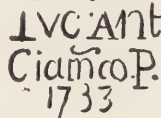 LVC·ANt
Ciamco.P.
1733